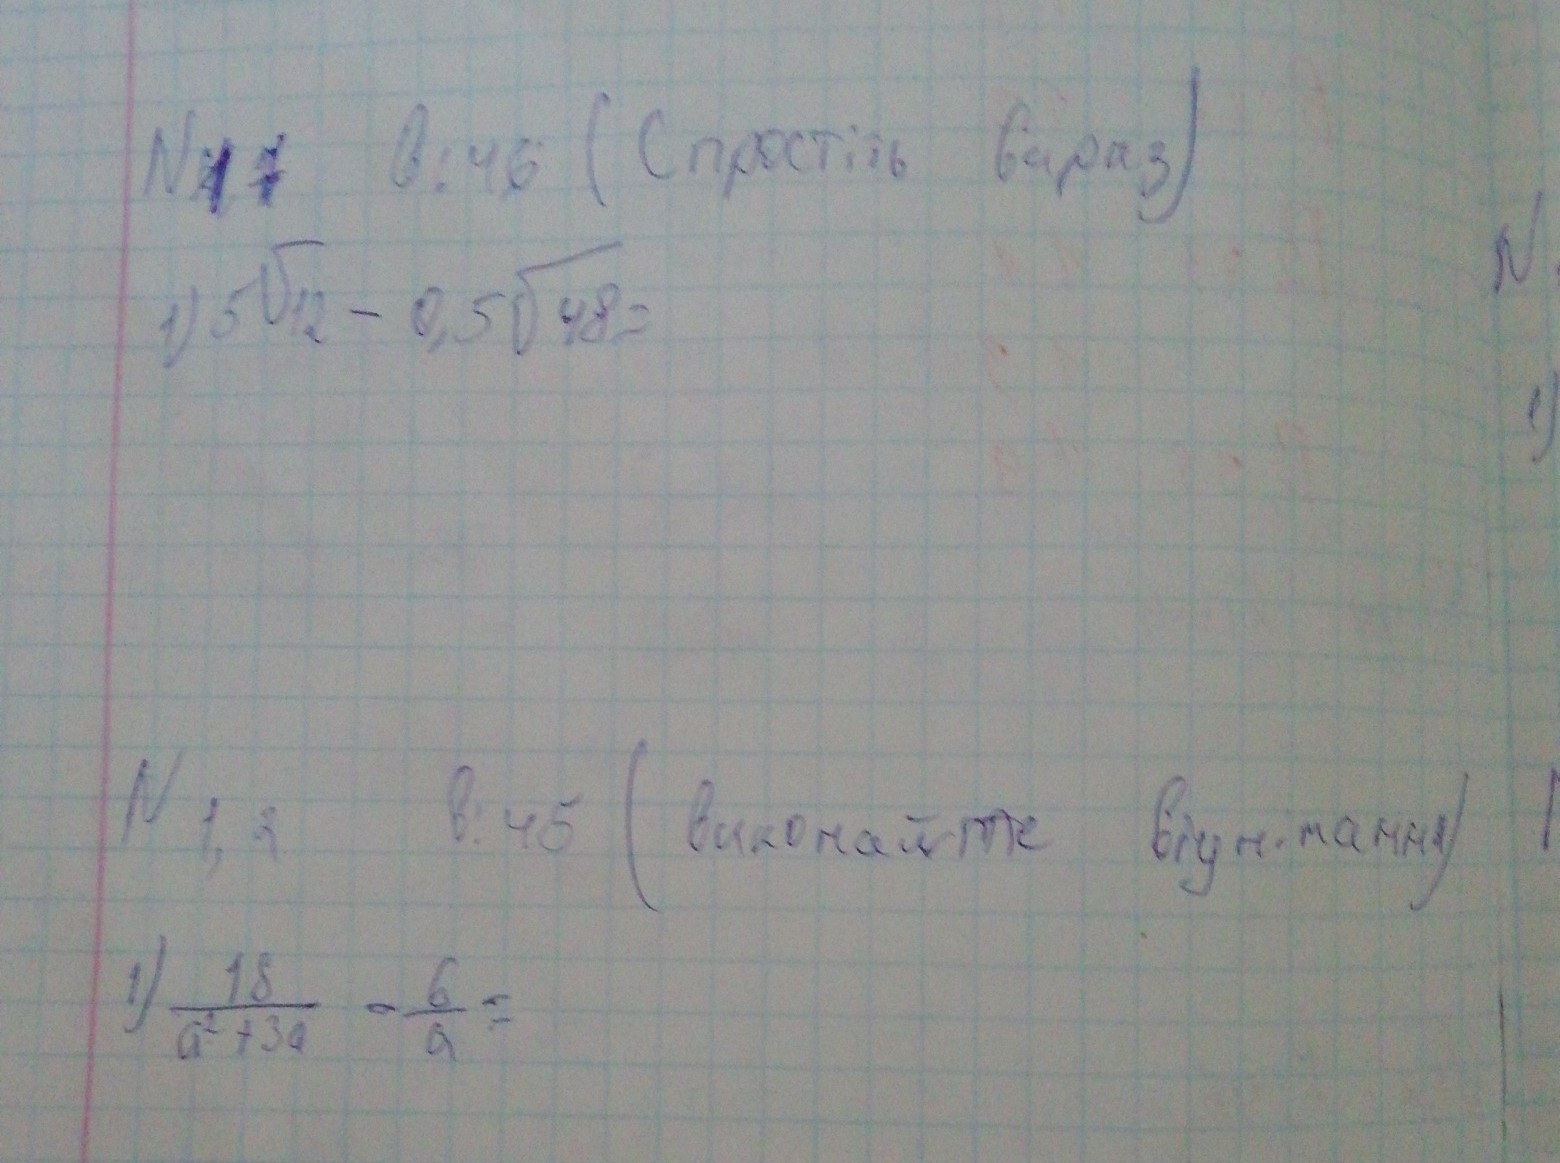 N 1.7 в:45 (Спростіть вираз)
1) 5√12 - 0,5√48 =
N 1,2 в:45 (виконайте віднімання)
1) 18/(a²+3a) - 6/a =
N
1)